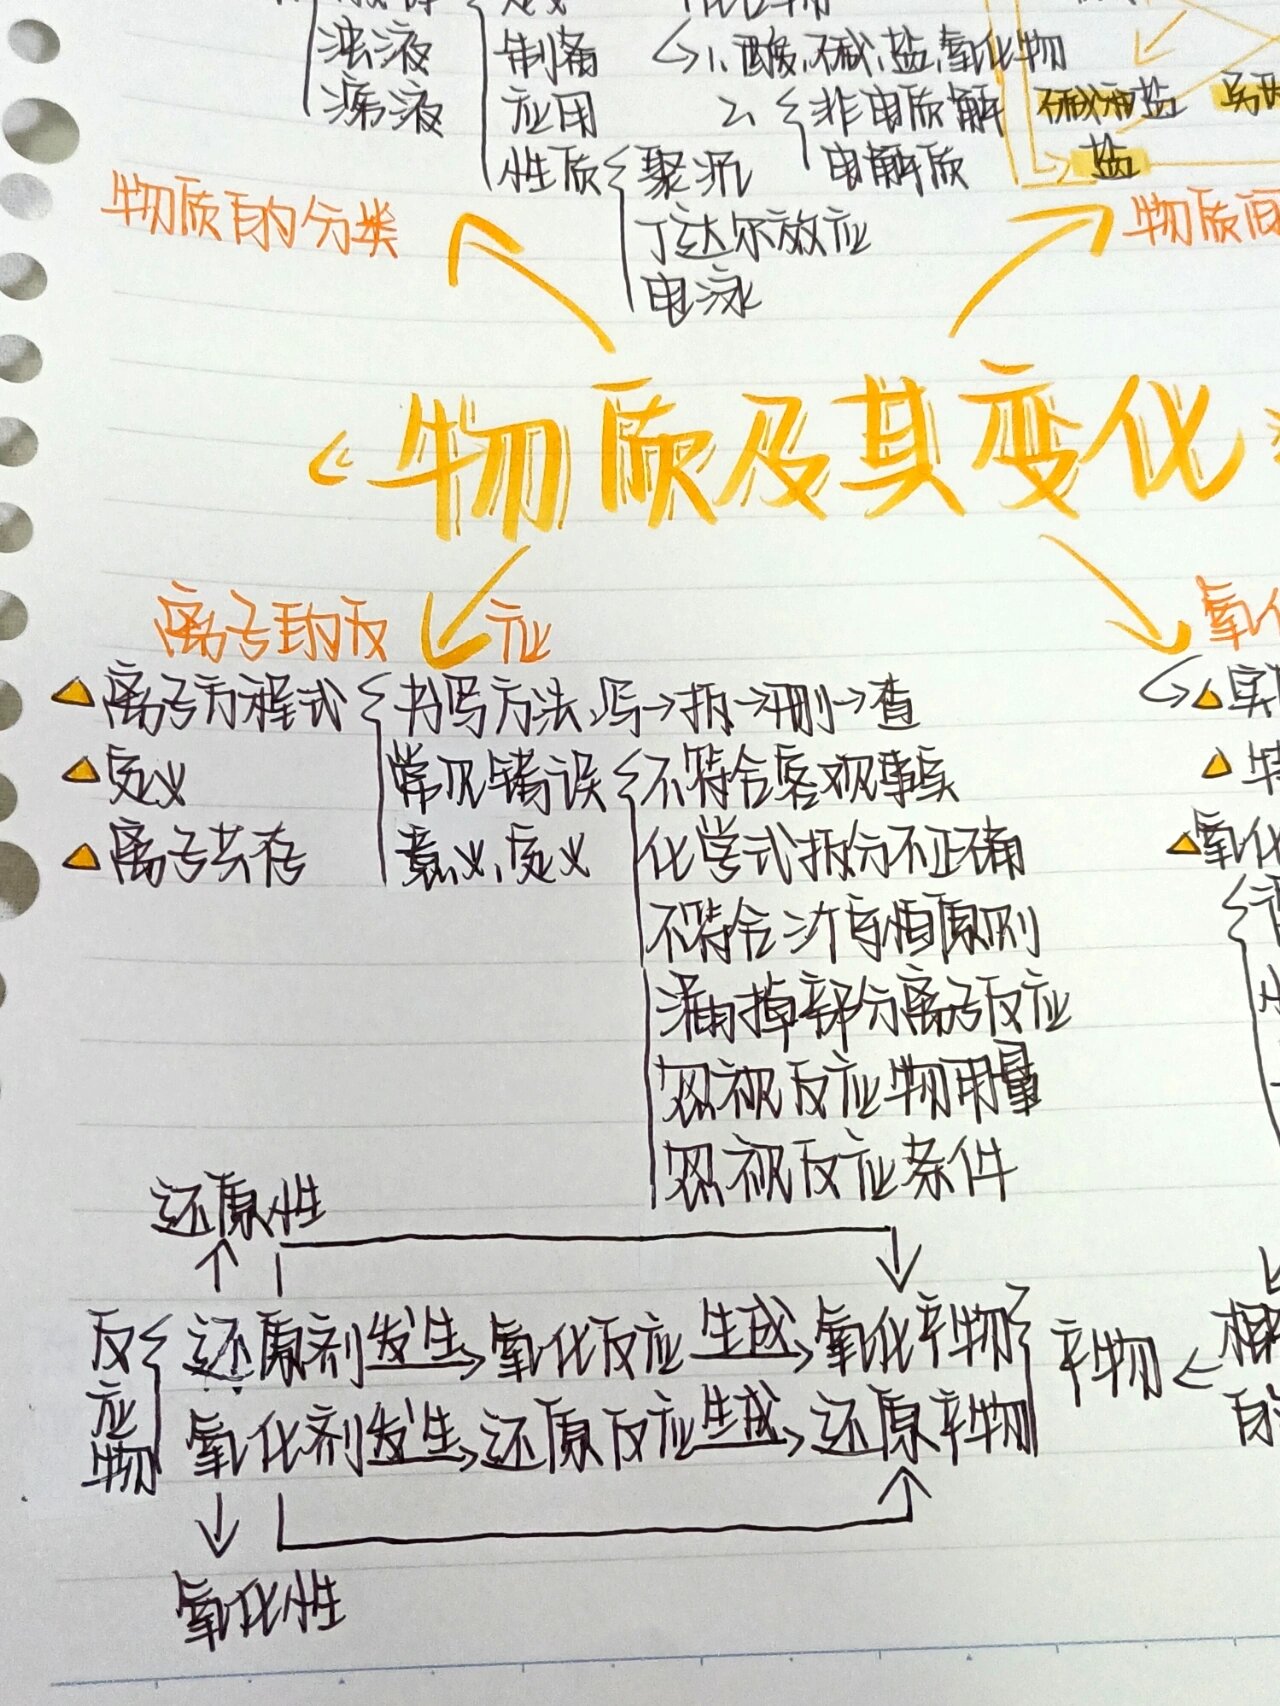 浊液 制备 1、酸、碱、盐、氧化物
滦液 应用 2、非电质解 碱和盐
性质 聚沉 电解质 盐
物质的分类 丁达尔效应 物质间
电泳
《物质及其变化》
离子的反应 氧化
离子方程式 书写方法、写→拆→删→查
定义 常见错误 不符合客观事实
离子共存 意义、定义 化学式拆分不正确 氧化
不符合守恒原则
漏掉部分离子反应
忽视反应物用量
忽视反应条件
还原性
反应物 还原剂 发生 氧化反应 生成 氧化产物 产物
氧化剂 发生 还原反应 生成 还原产物
氧化性